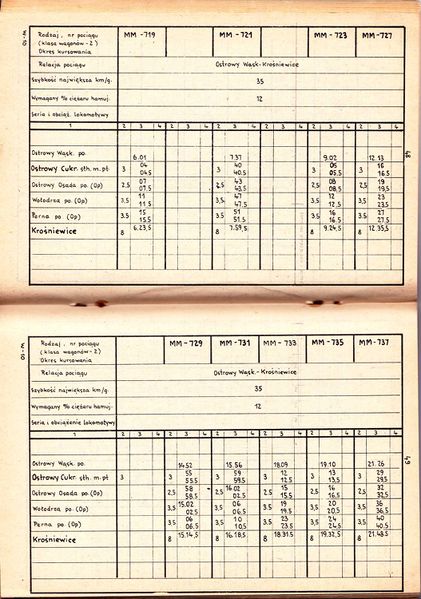 W-10
Rodzaj, nr pociągu
(klasa wagonów-2)
Okres kursowania
MM-719 MM-721 MM-723 MM-727
Relacja pociągu Ostrowy Wąsk-Krośniewice
Szybkość największa km/g. 35
Wymagany % ciężaru hamuj. 12
Seria i obciąż. lokomotywy
1 2 3 4 2 3 4 2 3 4 2 3 4
Ostrowy Wąsk. po. 6.01 7.37 9.02 12.13
Ostrowy Cukr. sth. m. pt 3 04 04.5 3 40 40.5 3 05 05.5 3 16 16.5
Ostrowy Osada po. (Op) 2,5 07 07.5 2,5 43 43.5 2,5 08 08.5 2,5 19 19.5
Wołodrza po. (Op) 3,5 11 11.5 3,5 47 47.5 3,5 12 12.5 3,5 23 23.5
Perna po. (Op) 3.5 15 15.5 3.5 51 51.5 3.5 16 16.5 3.5 27 27.5
Krośniewice 8 6.23,5 8 7.59,5 8 9.24,5 8 12.35,5
48
W-10
Rodzaj, nr pociągu
(klasa wagonów-2)
Okres kursowania
MM-729 MM-731 MM-733 MM-735 MM-737
Relacja pociągu Ostrowy Wąsk.-Krośniewice
Szybkość największa km/g. 35
Wymagany % ciężaru hamuj. 12
Seria i obciążenie lokomotywy
1 2 3 4 2 3 4 2 3 4 2 3 4
Ostrowy Wąsk. po. 14.52 15.56 18.09 19.10 21.26
Ostrowy Cukr. sth. m. pt 3 3 55 55.5 3 59 59.5 3 12 12.5 3 13 13.5 3 29 29.5
Ostrowy Osada po (Op) 2,5 58 58.5 2,5 16.02 02.5 2,5 15 15.5 2,5 16 16.5 2,5 32 32.5
Wołodrza po (Op) 3,5 15.02 02.5 3,5 06 06.5 3,5 19 19.5 3,5 20 20.5 3,5 36 36.5
Perna po. (Op) 3.5 06 06.5 3.5 10 10.5 3.5 23 23.5 3.5 24 24.5 3.5 40 40.5
Krośniewice 8 15.14,5 8 16.18,5 8 18.31.5 8 19.32,5 8 21.48.5
49